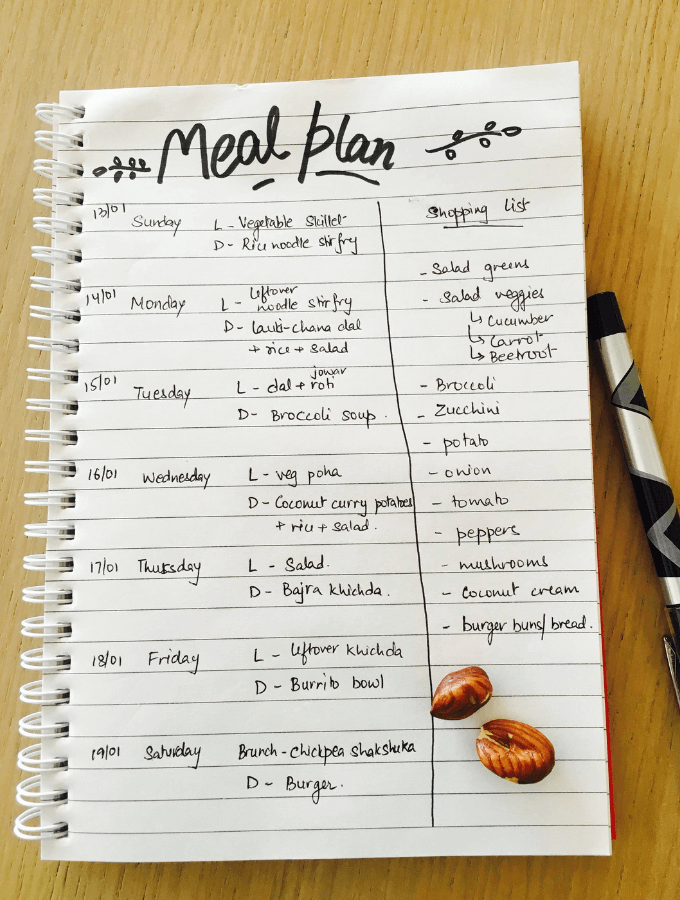 Meal plan
13/01 Sunday L - Vegetable Skillet
D - Rice noodle stirfry
14/01 Monday L - leftover
noodle stirfry
D - lauki-chana dal
+ rice + salad
15/01 Tuesday L - dal + jowar roti
D - Broccoli soup.
16/01 Wednesday L - veg poha
D - Coconut curry potatoes
+ rice + salad.
17/01 Thursday L - Salad.
D - Bajra khichda.
18/01 Friday L - leftover khichda
D - Burrito bowl
19/01 Saturday Brunch - chickpea shakshuka
D - Burger.
Shopping list
- Salad greens
- Salad veggies
↳ Cucumber
↳ Carrot
↳ Beetroot
- Broccoli
- Zucchini
- potato
- onion
- tomato
- peppers
- mushrooms
- coconut cream
- burger buns/bread.